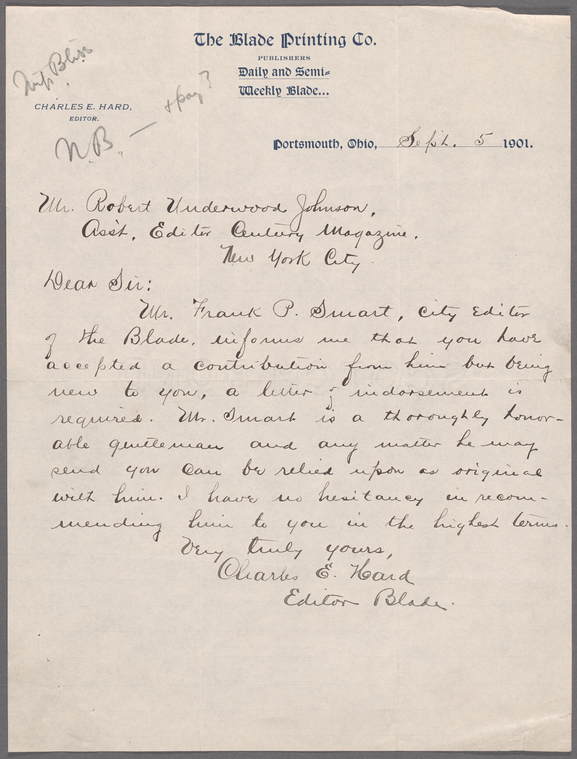 The Blade Printing Co.
PUBLISHERS
Daily and Semi-
Weekly Blade...
Miss Bliss
CHARLES E. HARD,
EDITOR.
N.B. — + pay?
Portsmouth, Ohio, Sept. 5 1901.
Mr. Robert Underwood Johnson,
Ass't, Editor Century Magazine.
New York City.
Dear Sir:
Mr. Frank P. Smart, City Editor
of the Blade, informs me that you have
accepted a contribution from him but being
new to you, a letter of indorsement is
required. Mr. Smart is a thoroughly honor-
able gentleman and any matter he may
send you can be relied upon as original
with him. I have no hesitancy in recom-
mending him to you in the highest terms.
Very truly yours,
Charles E. Hard
Editor Blade.